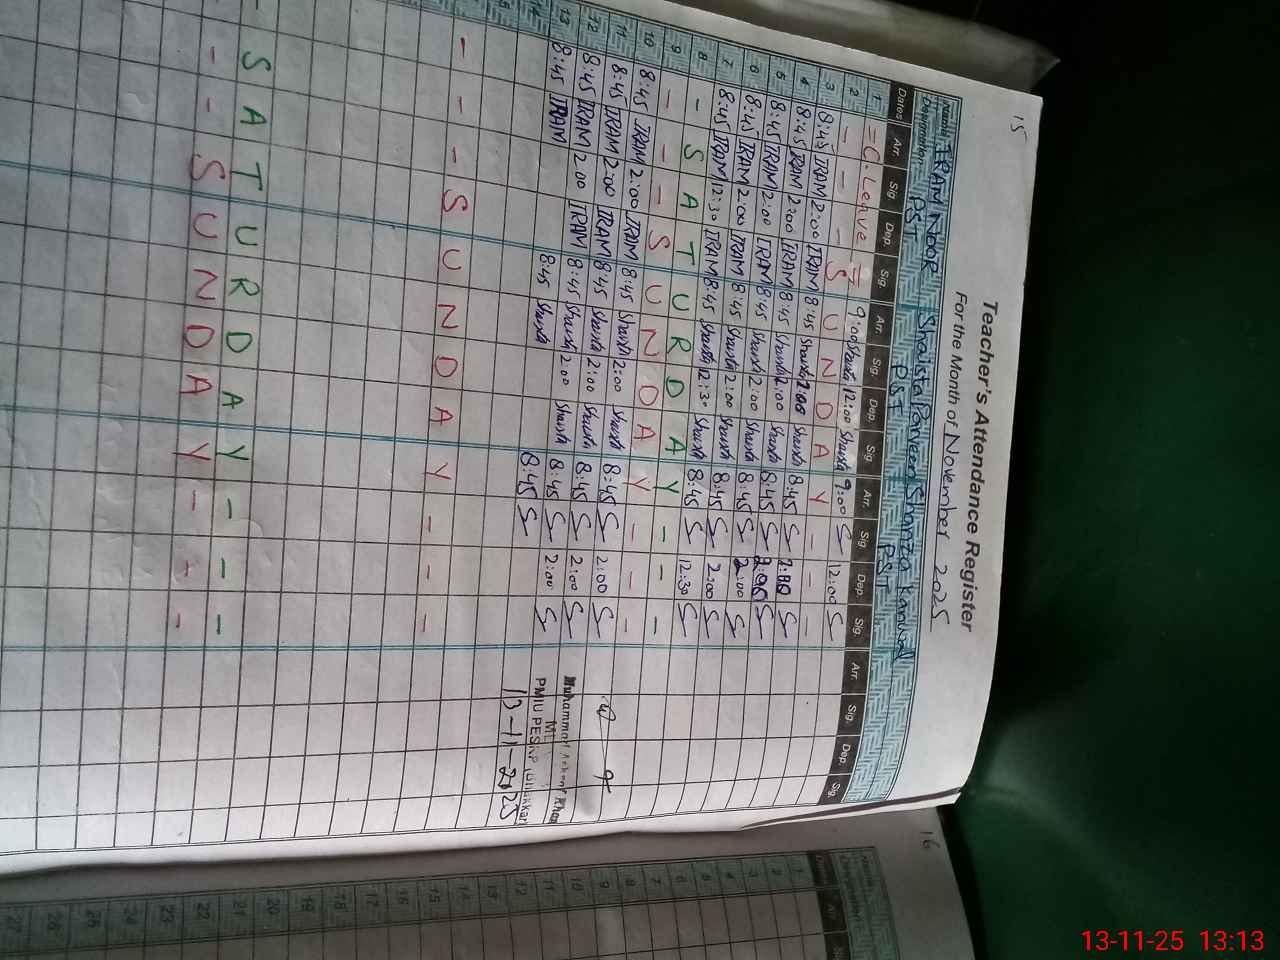 15
Teacher's Attendance Register
For the Month of November 2025
Name IRAM NOOR Shaista Parveen Shahnza Kanwal
Designation PST PST PST
Dates Arr. Sig. Dep. Sig. Arr. Sig. Dep. Sig. Arr. Sig. Dep. Sig. Arr. Sig. Dep. Sig.
1 = C. Leave = 9:00 Shaista 12:00 Shaista 9:00 S 12:00 S
2 - - - S U N D A Y - - -
3 8:45 IRAM 2:00 IRAM 8:45 Shaista 2:00 Shaista 8:45 S 2:00 S
4 8:45 IRAM 2:00 IRAM 8:45 Shaista 2:00 Shaista 8:45 S 2:00 S
5 8:45 IRAM 2:00 IRAM 8:45 Shaista 2:00 Shaista 8:45 S 2:00 S
6 8:45 IRAM 2:00 IRAM 8:45 Shaista 2:00 Shaista 8:45 S 2:00 S
7 8:45 IRAM 12:30 IRAM 8:45 Shaista 12:30 Shaista 8:45 S 12:30 S
8 - S A T U R D A Y - - -
9 - - - S U N D A Y - - -
10 8:45 IRAM 2:00 IRAM 8:45 Shaista 2:00 Shaista 8:45 S 2:00 S
11 8:45 IRAM 2:00 IRAM 8:45 Shaista 2:00 Shaista 8:45 S 2:00 S
12 8:45 IRAM 2:00 IRAM 8:45 Shaista 2:00 Shaista 8:45 S 2:00 S
13 8:45 IRAM 8:45 Shaista 8:45 S
14
15
- - - S U N D A Y - - -
S A T U R D A Y - - -
- - S U N D A Y - - -
Muhammad Khan
PMIU PESRP
13-11-2025
16
1
2
3
4
5
6
7
8
9
10
11
12
13
14
15
16
17
18
19
20
21
22
23
24
25
26
27
13-11-25 13:13